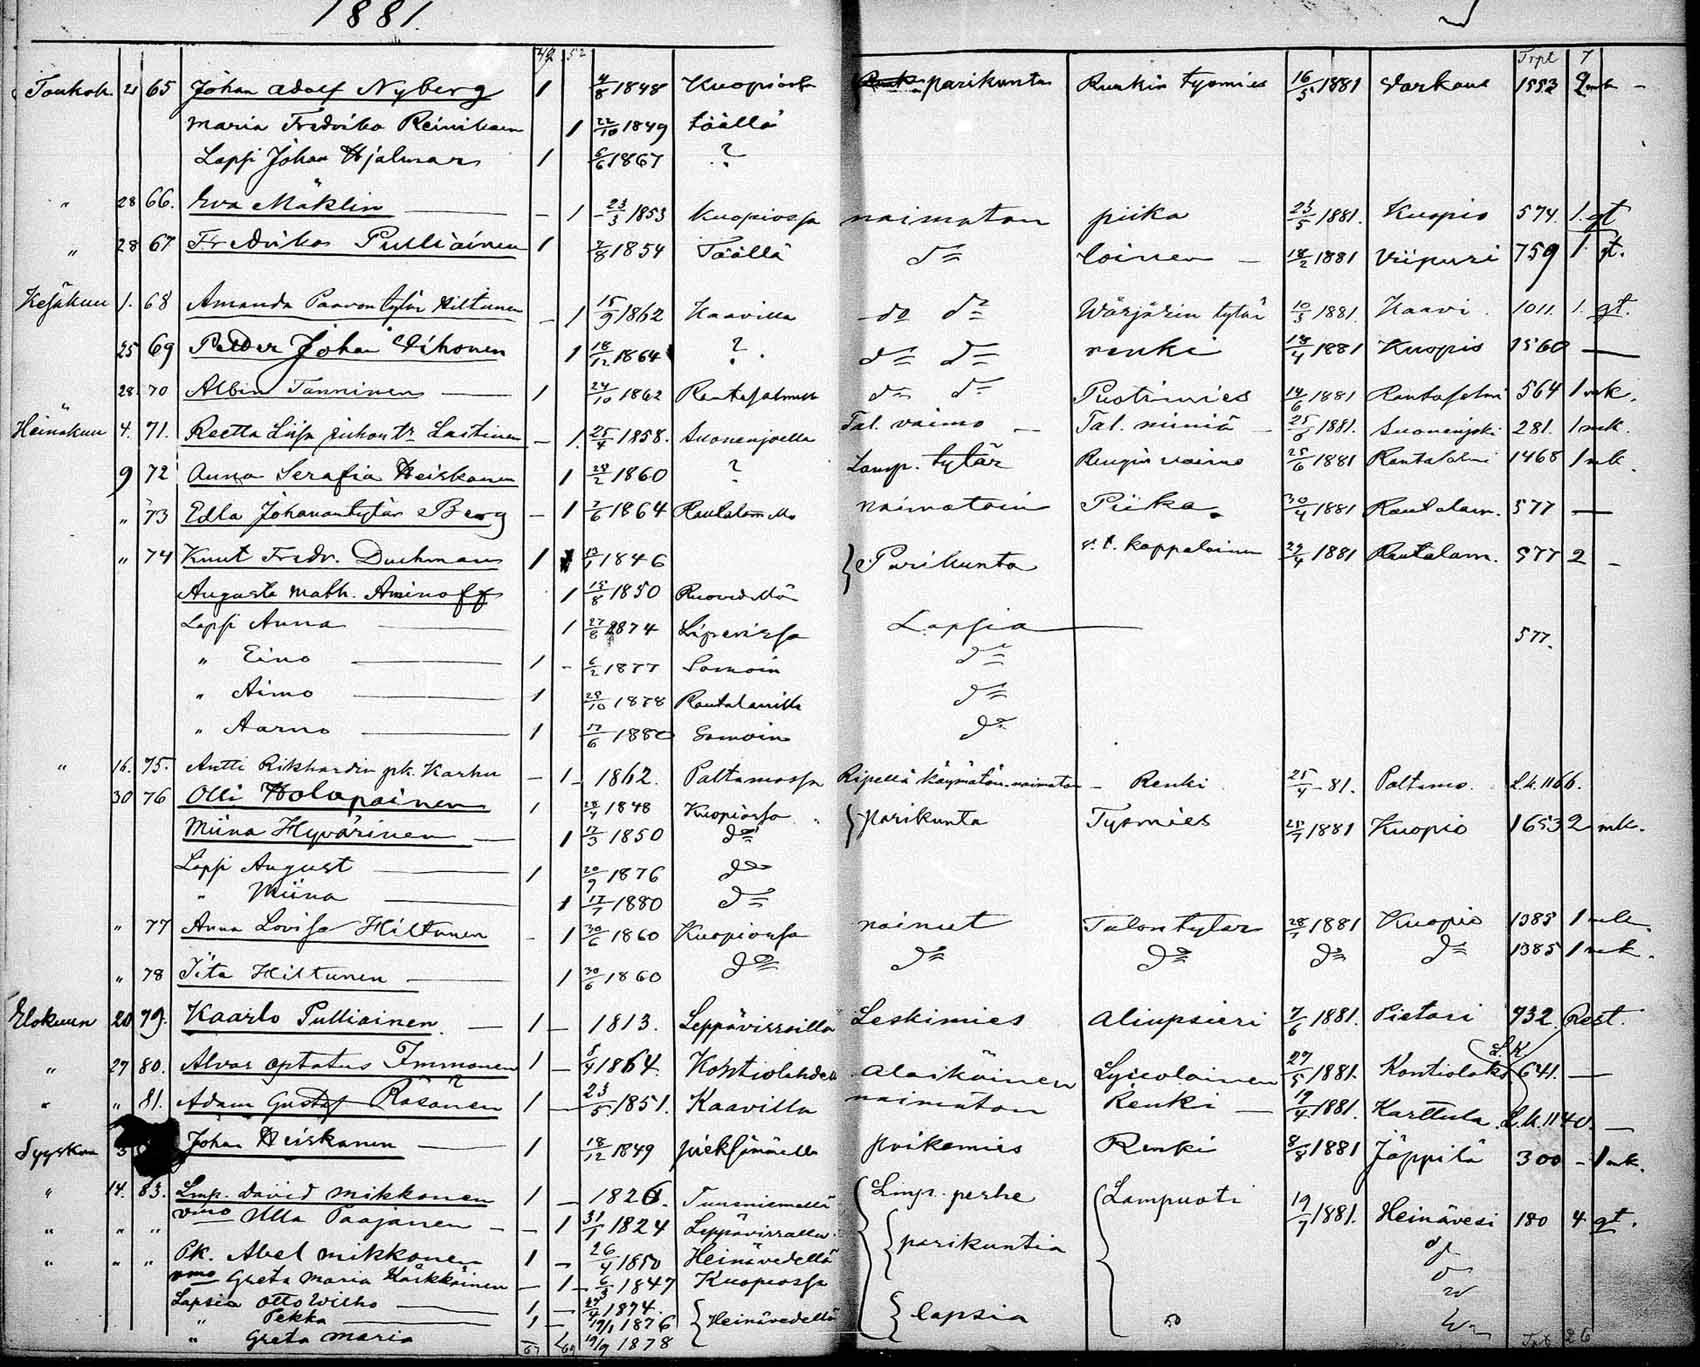 1881.
49 52 Trpl 7
Toukok. 21 65 Johan Adolf Nyberg 1 4/8 1848 Kuopiosta parikunta Renkin työmies 16/5 1881 Varkaus 1552 2 mk -
Maria Fredrika Reinikain 1 22/10 1849 täällä
Lapsi Johan Hjalmar 1 6/6 1867 ?
" 28 66. Eva Mäklin - 1 23/3 1853 Kuopiossa naimaton piika 23/5 1881. Kuopio 574. 1. gt
" 28 67 Fredrika Pulliainen 1 2/8 1854 Täällä d= loinen - 18/2 1881 Viipuri 759 1. gt.
Kesäkuu 1. 68 Amanda Paavontytär Hiltunen - 1 15/9 1862 Kaavilla do d= Wärjärin tytär 10/5 1881. Kaavi. 1011. 1. gt.
25 69 Petter Johan Tihonen 1 18/12 1864 ? d= d= renki 18/4 1881 Kuopio 1560 -
28. 70 Albin Tanninen 1 24/10 1862 Rantasalmella d= d= Puotimies 14/6 1881 Rantasalmi 564 1 mk.
Heinäkuu 4. 71. Reetta Liisa Juhontr Lastinen - 1. 25/4 1858. Suonenjoella Tal. vaimo - Tal. miniä - 25/6 1881. Suonenjoki 281. 1 mk.
9 72 Anna Serafia Heiskanen 1 28/2 1860 ? Lamp. tytär Rengin vaimo 25/6 1881 Rantasalmi 1468 1 mk.
" 73 Edla Johanantytär Berg - 1 7/6 1864 Rautalammilla naimatoin Piika. 30/4 1881 Rautalam. 577 -
" 74 Knut Fredr. Duchman 1 17/1 1846 Parikunta v.t. kappalainen 29/4 1881 Rautalam. 577 2 -
Augusta Math. Aminoff 1 15/8 1850 Ruovedellä
Lapsi Anna 1 27/8 1874 Liperissä Lapsia 577.
" Eino 1 - 6/2 1877 Samoin d=
" Aimo 1 29/10 1878 Rautalamilla d=
" Aarno 1 17/6 1880 Samoin d=
" 16. 75. Antti Rikhardin pk. Karhu - 1 - 1862. Paltamossa Ripellä käymätön naimaton - Renki 25/4 - 81. Paltamo. L.k. 1166.
30 76 Olli Holopainen 1 28/4 1848 Kuopiossa " parikunta Työmies 25/7 1881 Kuopio 1653 2 mk.
Miina Hyvärinen - 1 17/3 1850 d=
Lapsi August 1 20/9 1876 d=
" Miina 1 17/7 1880 d=
" 77 Anna Lovisa Hiltunen - 1 30/6 1860 Kuopiossa naimat Talon tytär 28/7 1881 Kuopio 1385 1 mk.
" 78 Iita Hiltunen 1 30/6 1860 d= d= d= d= d= 1385 1 mk.
Elokuun 20 79. Kaarlo Pulliainen. - 1 - 1813. Leppävirroilla Leskimies Aliupsieri 7/6 1881. Pietari 732. Rest.
" 27 80. Alvar Optatus Immonen 1 - 5/4 1864. Kontiolahdella alaikäinen Lyseolainen 27/5 1881. Kontiolaks L.K 641. -
" " 81. Adam Gustaf Räsänen 1 - 23/5 1851. Kaavilla naimaton Renki - 19/4 1881. Karttula. L.k. 1140. -
Syyskuu 3 Johan Heiskanen 1 18/12 1849 Pieksämäellä poikamies Renki 8/8 1881 Jäppilä 300 - 1 mk.
" 14. 83. Lmp. David Mikkonen 1 - 1826. Tuusniemellä Lmp. perhe Lampuoti 19/7 1881. Heinävesi 180 4 gt.
" " " vmo Ulla Paajanen - - 1 31/1 1824 Leppävirralla.
" " " Pk. Abel Mikkonen 1 - 26/4 1850 Heinävedellä parikuntia
vmo Greta Maria Kärkkäinen - 1 - 6/3 1847 Kuopiossa
Lapsia Otto Wilho 1 - 27/4 1874. Heinävedellä lapsia
" Pekka 1 - 19/1 1876
" Greta Maria 19/9 1878
Trp. 26